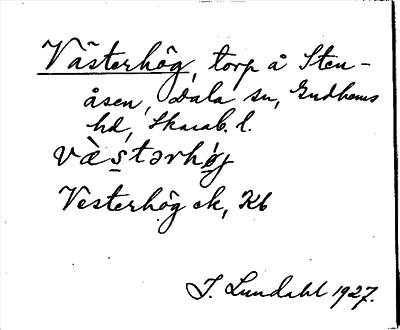 Västerhög, torp å Sten-
åsen, Dala sn, Gudhems
hd, Skarab. l.
vàstərhǿg
Vesterhög ek, Kb
I. Lundahl 1927.